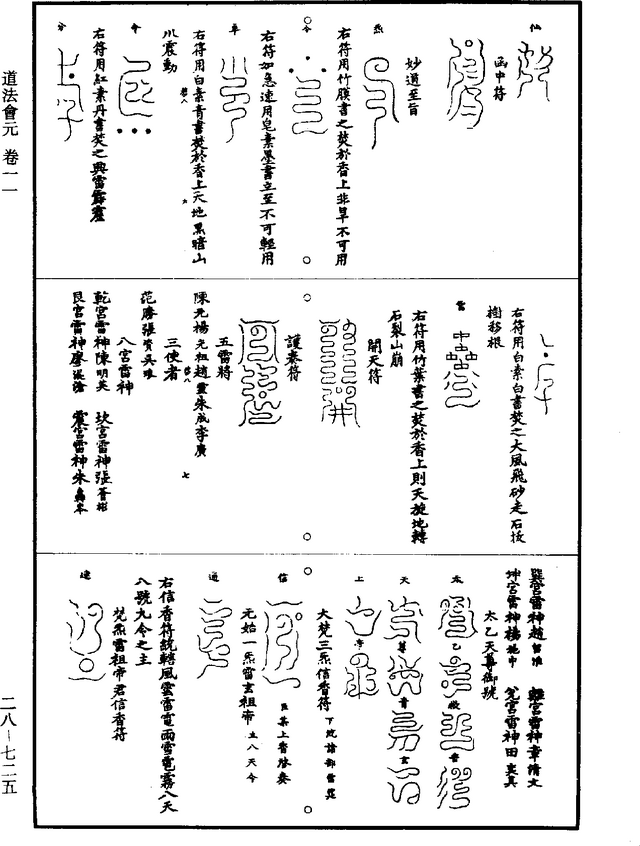 仙
函中符
妙通至旨
炁
右符用竹膜書之焚於香上非旱不可用
令
右符加急速用皂素墨書立至不可輕用
車
右符用白素青書焚於香上天地黑暗山
川震動
令
右符用紅素丹書焚之興雷霹靂
分
右符用白素白書焚之大風飛砂走石拔
樹移根
雷
右符用竹葉書之焚於香上則天旋地轉
石裂山崩
開天符
護奏符
五雷將
陳元楊 元祖趙靈朱成李廣
三使者
范勝張資吳
八宮雷神
乾宮雷神陳明英 坎宮雷神張
艮宮雷神廖 震宮雷神朱
巽宮雷神趙 離宮雷神章清文
坤宮雷神楊 兌宮雷神田
太乙天尊御號
太
乙
天
尊
玄
上
大梵三炁信香符
信
臣某上香啓奏
元始一炁雷玄祖帝 主八天令
通
右信香符統轄風雲雷電雨雪雹霧八天
八號九令之主
梵炁雷祖帝君信香符
達
道法會元 卷一一
二八—七二五